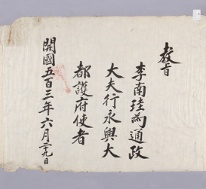 敎旨
李南珪爲通政
大夫行永興大
都護府使者
開國五百三年六月二十九日